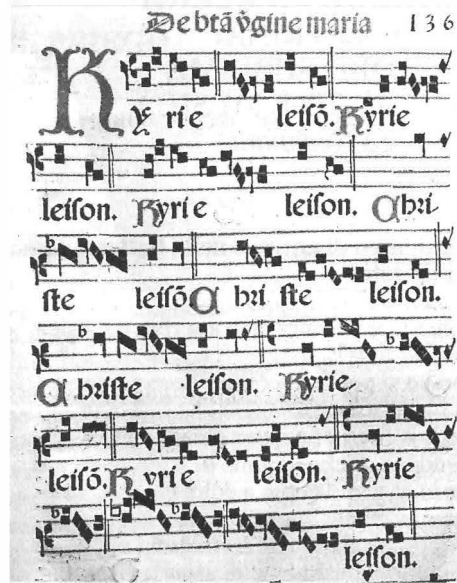 De btã v̄gine maria 136
Kyrie leisõ. Kyrie
leison. Kyrie leison. Chri
ste leisõ Chri ste leison.
Christe leison. Kyrie
leisõ. Kyrie leison. Kyrie
leison.